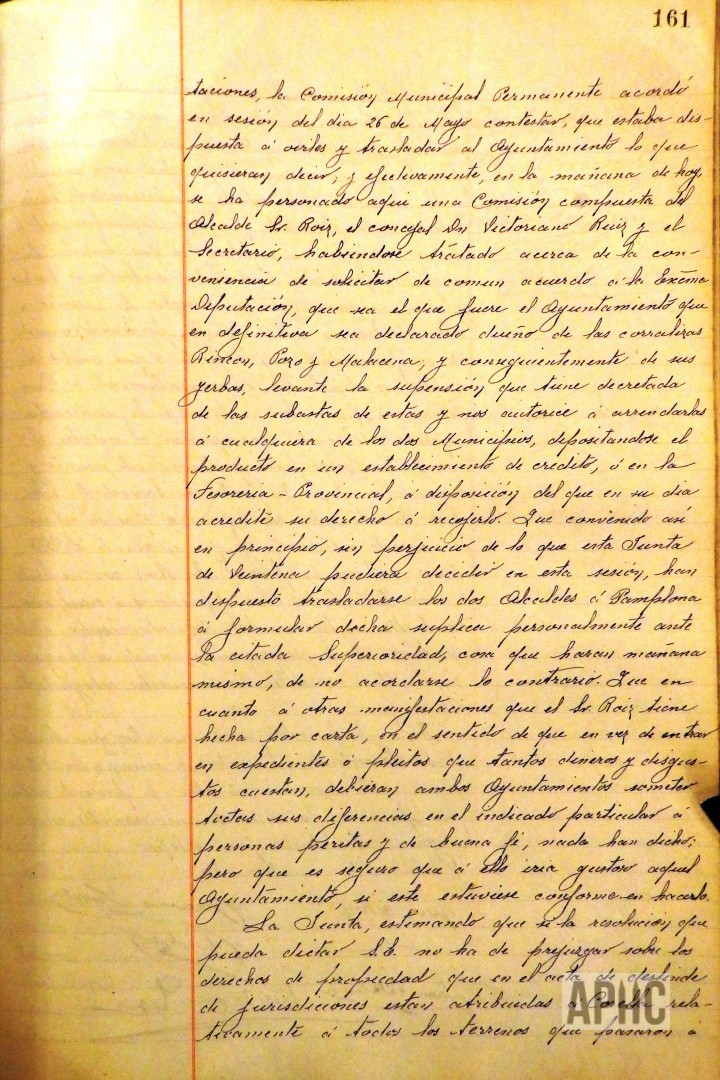 161
taciones, la Comisión Municipal Permanente acordó
en sesión del dia 26 de Mayo contestar, que estaba dis-
puesta á oirles y trasladar al Ayuntamiento lo que
quisieran decir; y efectivamente, en la mañana de hoy,
se ha personado aqui una Comisión compuesta del
Alcalde Sr. Roiz, el concejal Dn Victoriano Ruiz y el
Secretario, habiendose tratado acerca de la con-
veniencia de solicitar de comun acuerdo á la Excma
Diputación, que sea el que fuere el Ayuntamiento que
en definitiva sea declarado dueño de las corralizas
Rincon, Pozo y Malacena, y consiguientemente de sus
yerbas, levante la supensión que tiene decretada
de las subastas de estas y nos autorice á arrendarlas
á cualquiera de los dos Municipios, depositandose el
producto en un establecimiento de credito, ó en la
Tesoreria-Provincial, á disposición del que en su dia
acredite su derecho á recojerlo. Que convenido asi
en principio, sin perjuicio de lo que esta Junta
de Veintena pudiera decidir en esta sesión, han
dispuesto trasladarse los dos Alcaldes á Pamplona
á formular dicha suplica personalmente ante
la citada Superioridad, cosa que haran mañana
mismo, de no acordarse lo contrario. Que en
cuanto á otras manifestaciones que el Sr. Roiz tiene
hecha por carta, en el sentido de que en vez de entrar
en expedientes ó pleitos que tantos dineros y disgus-
tos cuestan, debieran ambos Ayuntamientos someter
todas sus diferencias en el indicado particular á
personas peritas y de buena fé, nada han dicho;
pero que es seguro que á ello iria gustoso aquel
Ayuntamiento, si este estuviese conforme en hacerlo.
La Junta, estimando que si la resolución que
pueda dictar S.E. no ha de prejuzgar sobre los
derechos de propiedad que en el acta de deslinde
de jurisdiciones estan atribuidas á Corella rela-
tivamente á todos los terrenos que pasaron á
APHC